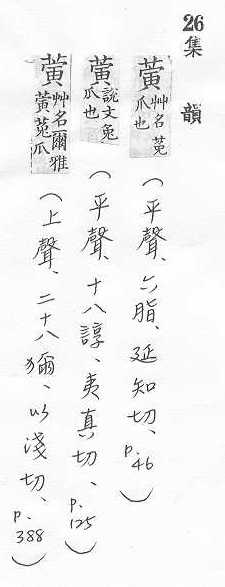 26集韻
蔩艸名菟瓜也（平聲、六脂、延知切、p.46）
蔩說文兔瓜也（平聲、十八諄、夷真切、p.125）
蔩艸名爾雅蔩菟瓜（上聲、二十八獮、以淺切、p.388）